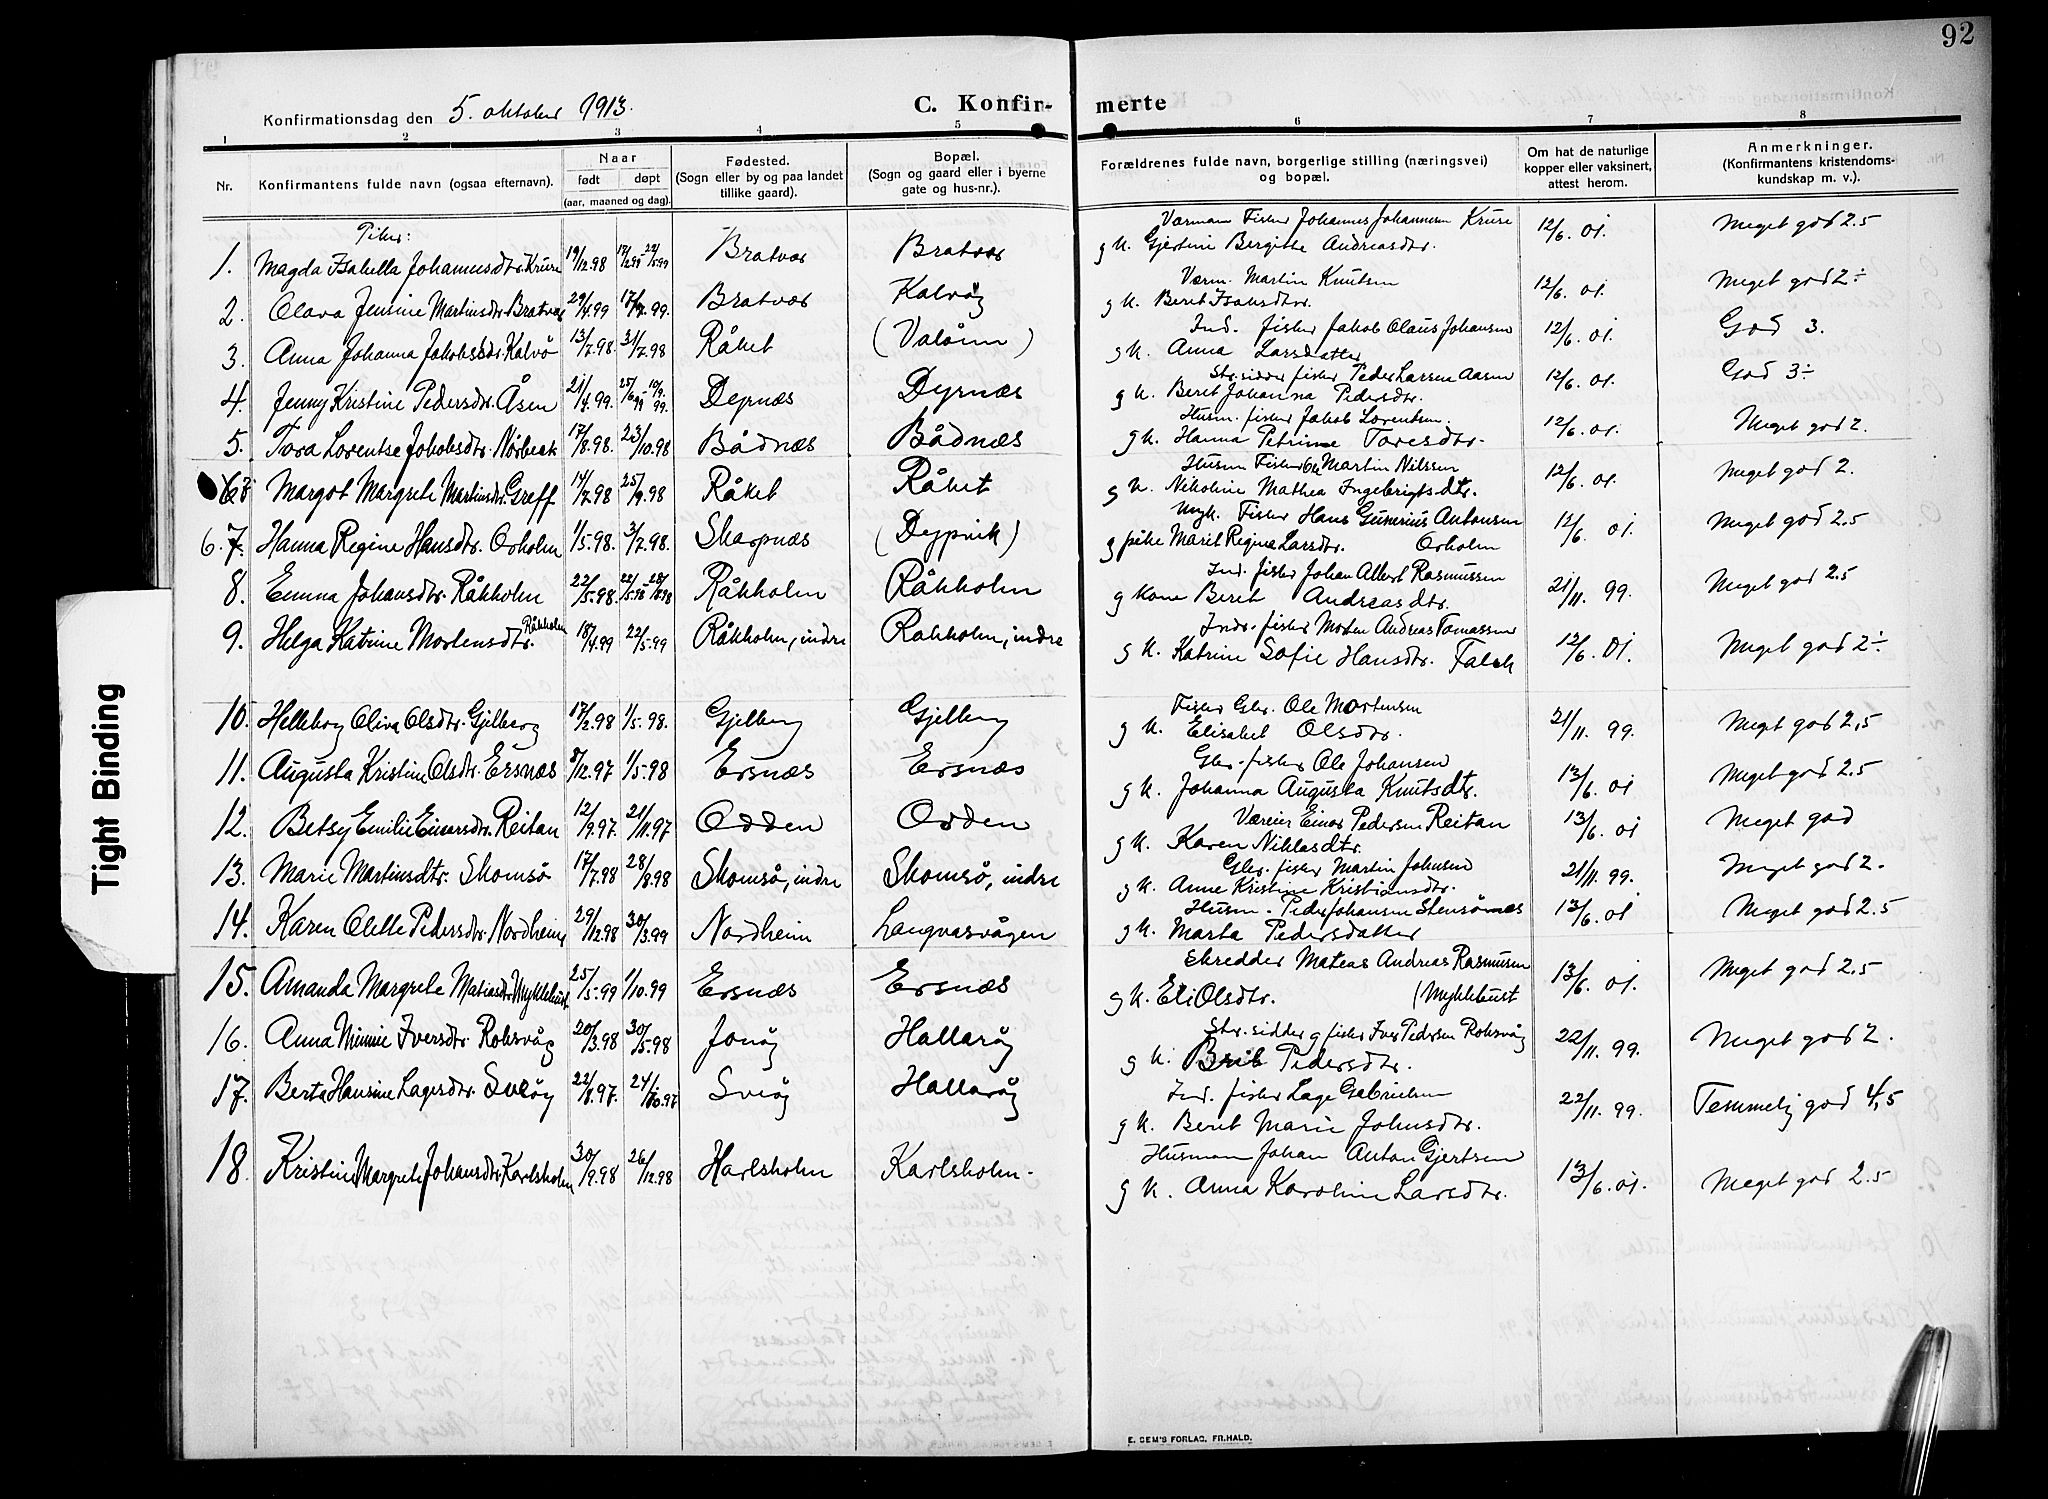 92
Konfirmationsdag den 5. oktober 1913.
C. Konfir- merte
1 2 3 4 5 6 7 8
Nr.
Konfirmantens fulde navn (ogsaa efternavn).
Naar
født døpt
(aar, maaned og dag).
Fødested.
(Sogn eller by og paa landet
tillike gaard).
Bopæl.
(Sogn og gaard eller i byerne
gate og hus-nr.).
Forældrenes fulde navn, borgerlige stilling (næringsvei)
og bopæl.
Om hat de naturlige
kopper eller vaksinert,
attest herom.
Anmerkninger.
(Konfirmantens kristendoms-
kundskap m. v.).
Piker:
Værmann Fisker Johannes Johannesen Kruse
1. Magda Isabella Johannesdtr. Kruse 19/12.98 Bratvær Bratvær g k. Gjertine Bergitte Andreasdtr. 12/6. 01. Meget god 2.5
Værm. Martin Knutsen
2. Olava Jensine Martinsdtr. Bratvær 29/4.99 17/7.99. Bratvær Kalvøy g k. Beret Isaksdtr. 12/6. 01. Meget god 2÷
Ind. fisker Jakob Olaus Johansen
3. Anna Johanna Jakobsdtr. Kalvø 13/7.98. 31/7.98 Råket (Valøen) g k. Anna Larsdatter 12/6. 01. God 3.
Str.sidder fisker Peder Larsen Aasen
4. Jenny Kristine Pedersdtr. Åsen 21/4.99. 25/6.99 - 10/9.99. Dyrnæs Dyrnæs g k. Beret Johanna Pedersdtr. 12/6. 01. God 3÷
Husm. fisker Jakob Lorentsen.
5. Tora Lorentse Jakobsdtr. Nørbeck 17/8.98. 23/10.98 Bådnæs Bådnæs g k. Hanna Petrine Toresdtr. 12/6. 01. Meget god 2.
Husm Fisker Ole Martin Nilssen
7 Margot Margrete Martinsdtr. Greff 14/7.98 25/9.98 Råket Råket g k. Nikoline Mathea Ingebrigtsdtr. 12/6. 01. Meget god 2.
Ungk. Fisker Hans Gunerius Antonsen
6. 7. Hanna Regine Hansdtr. Orholm 1/5.98. 3/7.98. Skarpnæs (Dypvik) g pike Marit Regina Larsdtr. Orholm 12/6. 01. Meget god 2.5
Ind. fisker Johan Albert Rasmussen
8. Emma Johansdtr. Råkholm 22/5.98. 22/5.98 - 28/8.98 Råkholm Råkholm g kone Beret Andreasdtr. 21/11. 99. Meget god 2.5
Indr. fisker Morten Andreas Tomassen
9. Helga Katrine Mortensdtr. Råkholm 18/4.99 22/5.99 Råkholm, indre Råkholm, indre g k. Katrine Sofie Hansdtr. Falck 12/6. 01. Meget god 2÷
Fisker Gbr. Ole Mortensen
10. Helleborg Oliva Olsdtr. Gjelberg 17/2.98 1/5.98. Gjelberg Gjelberg g k. Elisabet Olsdtr. 21/11. 99. Meget god 2.5
Gbr. fisker Ole Johansen
11. Augusta Kristine Olsdtr. Ersnæs 8/12.97 1/5.98 Ersnæs Ersnæs g k. Johanna Augusta Knutsdtr. 13/6. 01 Meget god 2.5
Væreier Einar Pedersen Reitan
12. Betsy Emilie Einarsdtr. Reitan 12/9.97. 21/11.97 Odden Odden g k. Karen Niklasdtr. 13/6. 01 Meget god
Gbr. fisker Martin Johnsen
13. Marie Martinsdtr. Skomsø 17/7.98 28/8.98 Skomsø, indre Skomsø, indre g k. Anne Kristine Kristiansdtr. 21/11. 99. Meget god 2.
Husm. Peder Johansen Stensønæs
14. Karen Olette Pedersdtr. Nordheim 29/12.98 30/3.99 Nordheim Langvasvågen g k. Marta Pedersdatter 13/6. 01 Meget god 2.5
Skredder Mateas Andreas Rasmusen
15. Amanda Margrete Matiasdtr. Myklebust 25/5.99 1/10.99 Ersnæs Ersnæs g k. Eli Olsdtr. (Myklebust 13/6. 01. Meget god 2.5
Str.sidder g fisker Iver Pedersen Roksvåg
16. Anna Minnie Iversdtr. Roksvåg 20/3.98 30/5.98 Jonøy Hallarøy g k. Brit Pedersdtr. 22/11. 99. Meget god 2.
Ind. fisker Lage Gabrielsen
17. Berta Hansine Lagesdtr. Sveøy 22/8.97. 24/10.97 Sveøy Hallarøy g k. Beret Marie Johnsdtr. 22/11. 99. Temmelig god 4,5
Husmann Johan Anton Gjertsen
18. Kristine Margrete Johansdtr. Karlsholm 30/9.98 26/12.98 Karlsholm Karlsholm. g k. Anna Karoline Larsdtr. 13/6. 01. Meget god 2.5
E. SEM'S FORLAG, FR.HALD.
Tight Binding